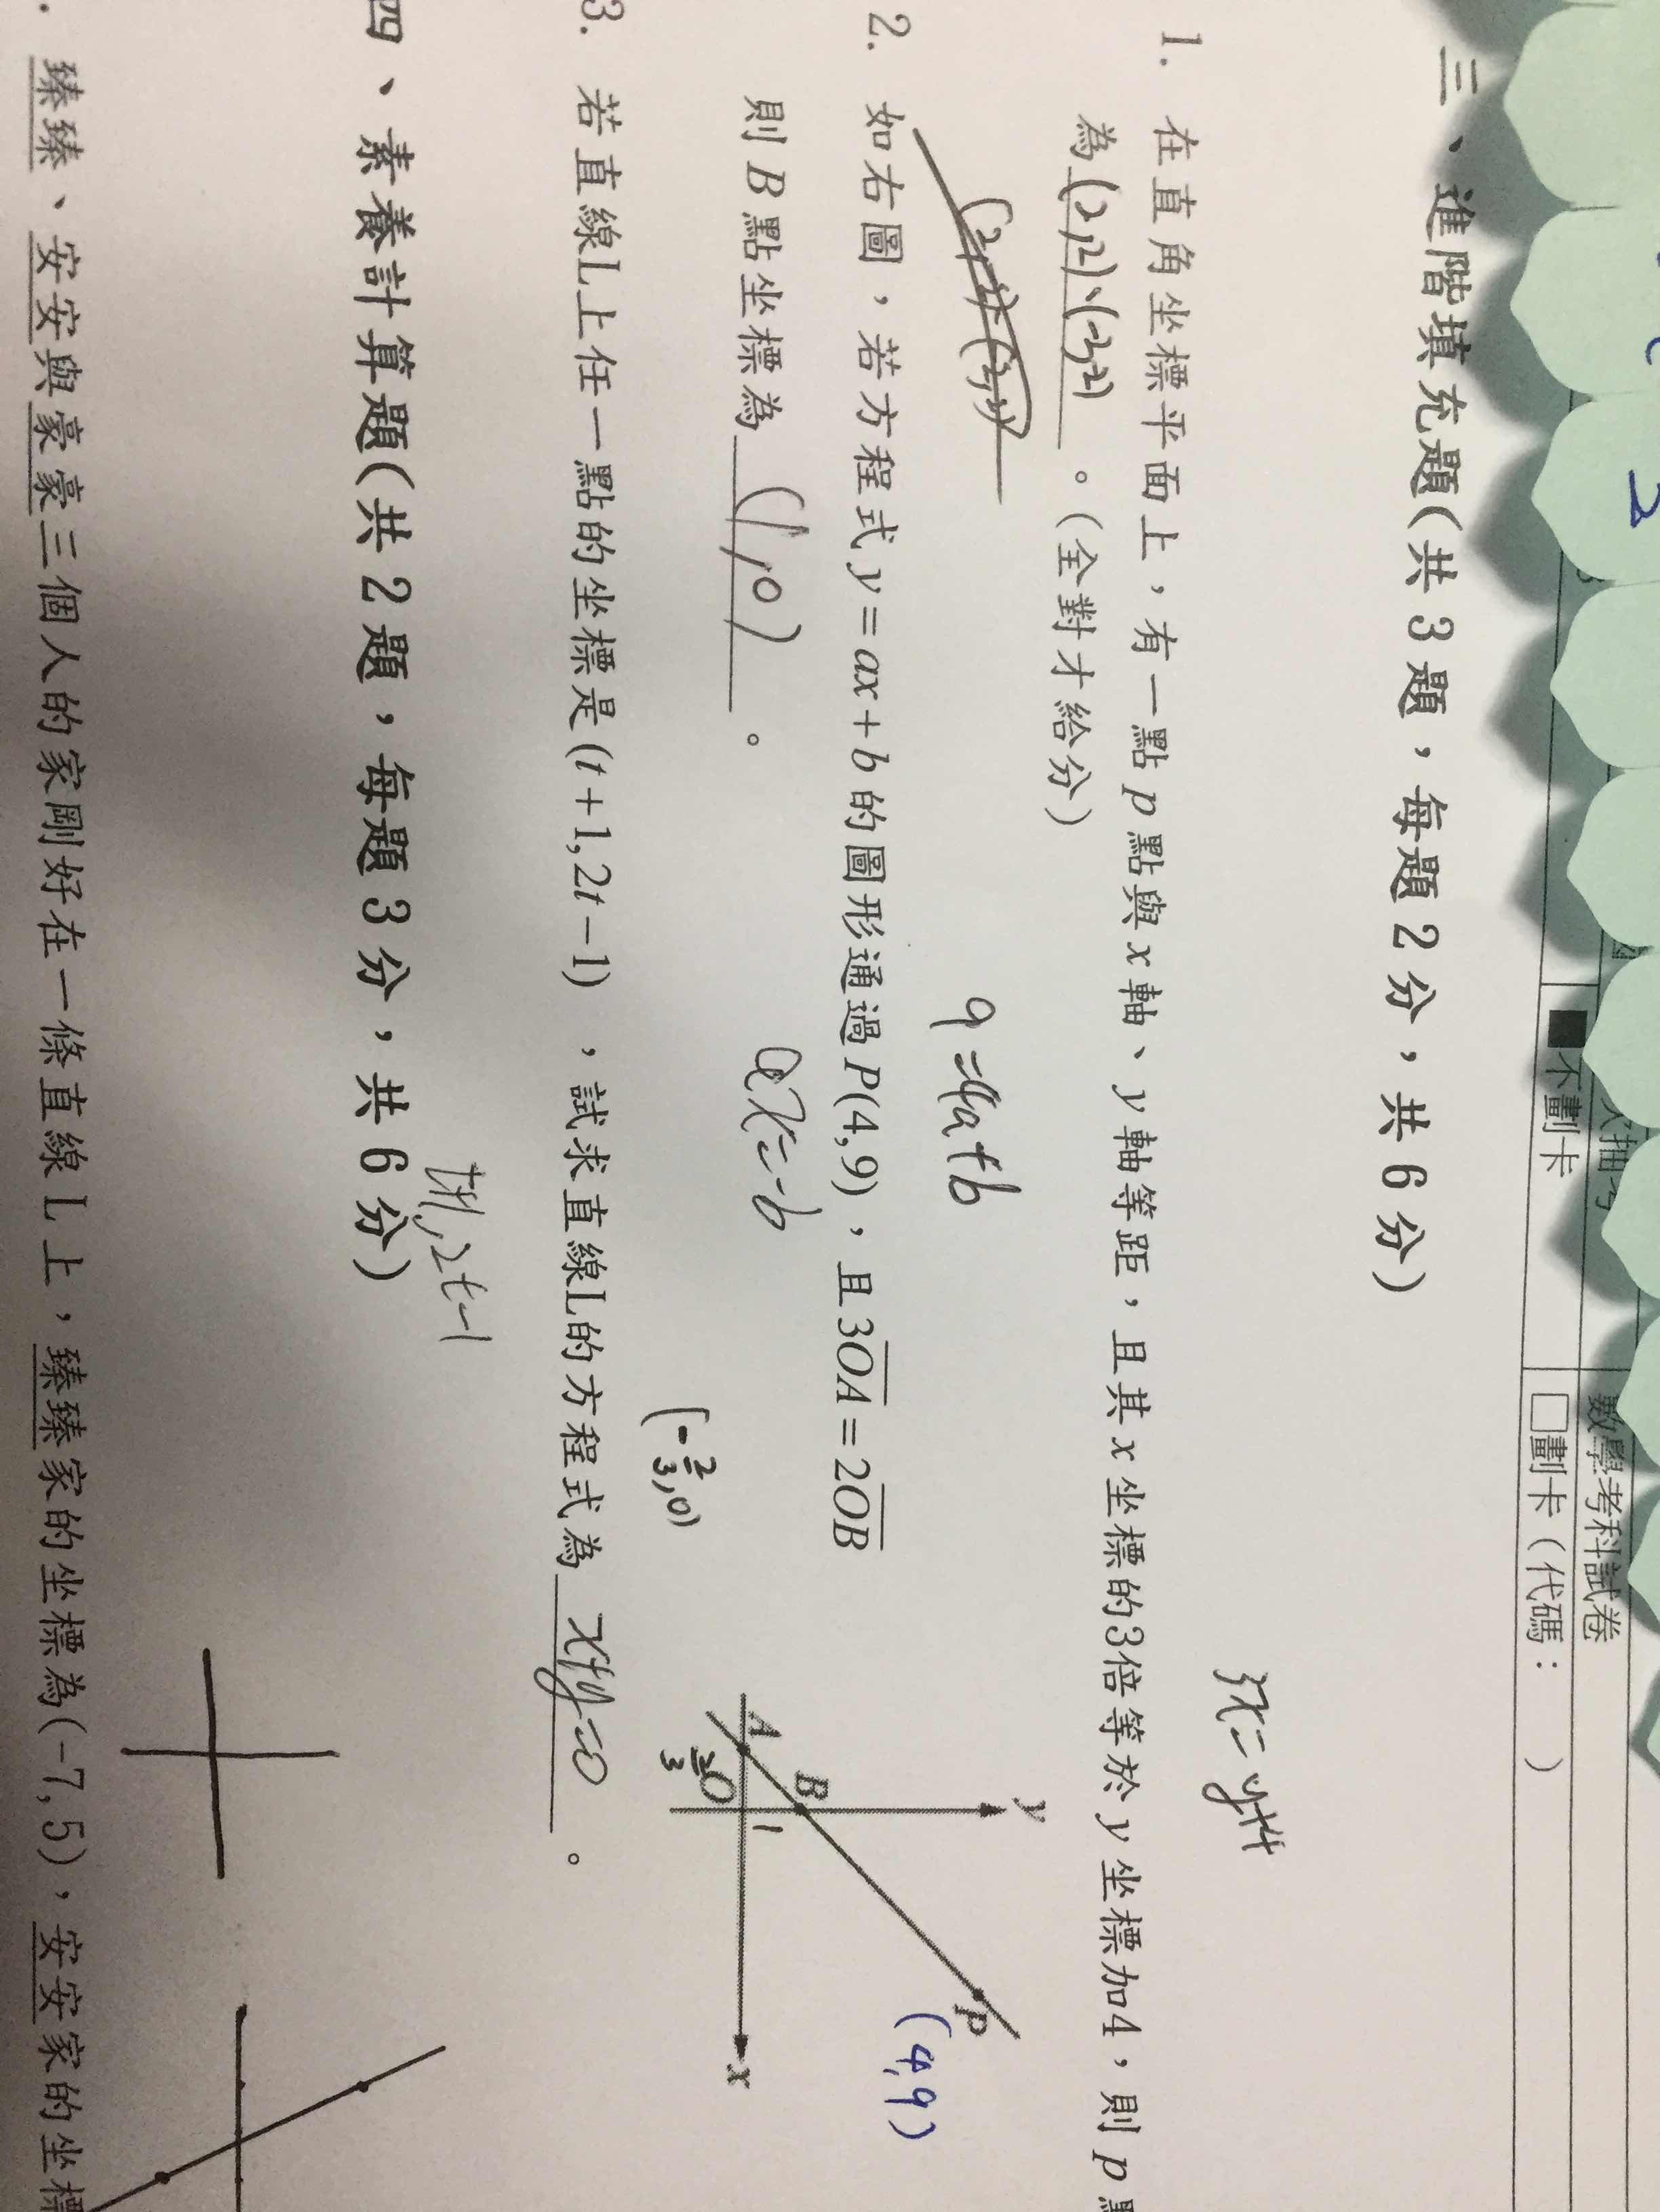 數學考科試卷
■不劃卡
□劃卡(代碼: )
三、進階填充題(共3題,每題2分,共6分)
3x=y+4
1. 在直角坐標平面上,有一點p點與x軸、y軸等距,且其x坐標的3倍等於y坐標加4,則p
為(2,2)、(-2,2)。(全對才給分)
9=4a+b
2. 如右圖,若方程式y=ax+b的圖形通過P(4,9),且3OA=2OB
則B點坐標為(1,0)。
ax=-b
(-2/3,0)
y
P
(4,9)
B
1
A
O
x
3. 若直線L上任一點的坐標是(t+1,2t-1),試求直線L的方程式為 x+y=0 。
t+1,2t-1
四、素養計算題(共2題,每題3分,共6分)
臻臻、安安與豪豪三個人的家剛好在一條直線L上,臻臻家的坐標為(-7,5),安安家的坐標